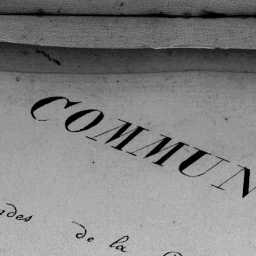 COMMUN
des de la